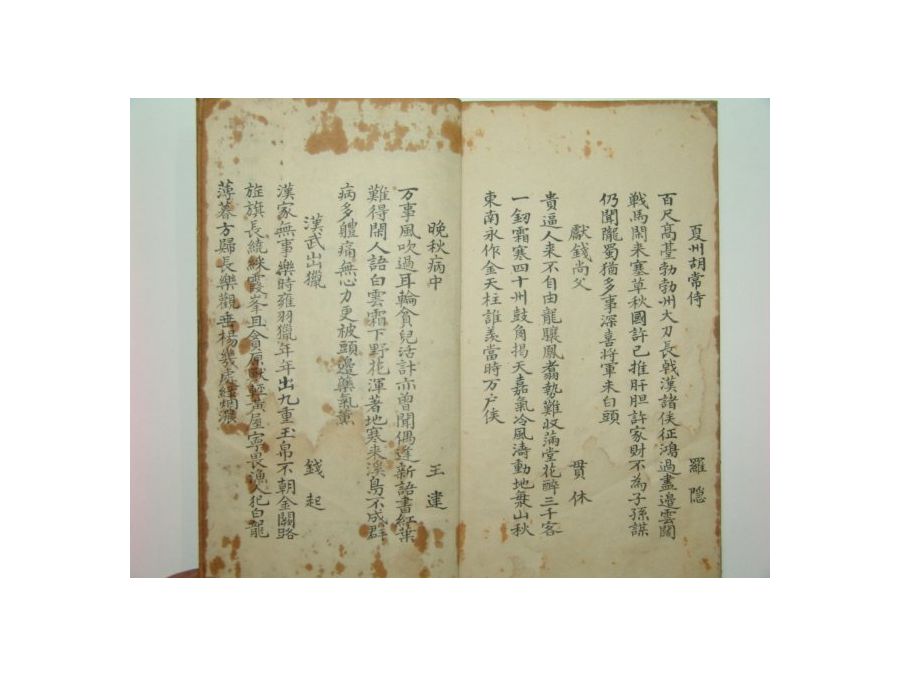 夏州胡常侍　羅隱
百尺高臺勃勃州大刀長戟漢諸侯征鴻過盡邊雲闊
戰馬閑来塞草秋國許已推肝胆許家財不為子孫謀
仍聞隴蜀猶多事深喜將軍未白頭
獻錢尚父　貫休
貴逼人来不自由龍驤鳳翥勢難收滿堂花醉三千客
一釼霜寒四十州鼓角揭天嘉氣冷風濤動地海山秋
東南永作金天柱誰羨當時万户侯
晚秋病中　王建
万事風吹過耳輪貧兒活計亦曽聞偶逢新語書紅葉
難得閑人語白雲霜下野花渾著地寒来溪鳥不成群
病多體痛無心力更被頭邊藥氣薰
漢武出獵　錢起
漢家無事樂時雍羽獵年年出九重玉帛不朝金闕路
旌旗長繞綵霞峯且貪原獸輕黄屋寧畏漁人犯白龍
薄暮方歸長樂觀垂楊幾處綠烟濃